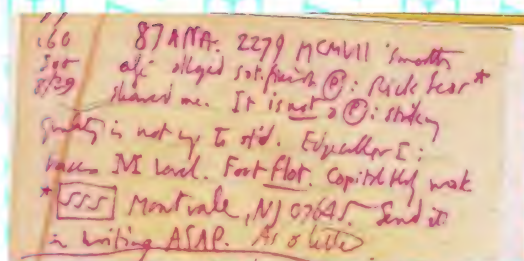 .60 87 ANA. 2279 MCMVII Smooth
500 alj alleged sat. finish Ⓟ: Rick Sear*
8/29 showed me. It is not a Ⓟ: striking
quality is not up to st'd. Edge collar I:
M level. Font flat. Capitol weak
* SSS Montvale, NJ 07645. Send it
in writing ASAP. As a letter